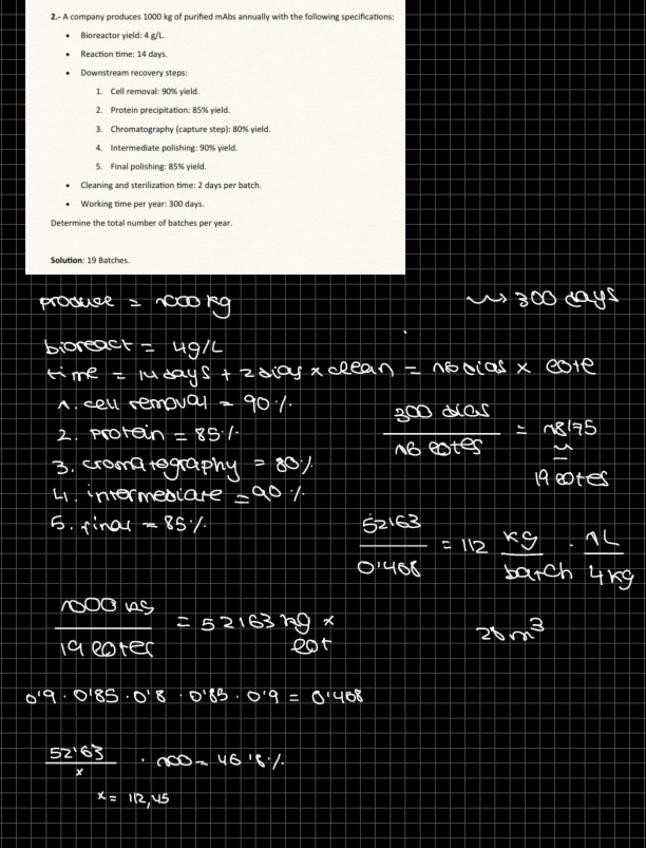 2.- A company produces 1000 kg of purified mAbs annually with the following specifications:
• Bioreactor yield: 4 g/L.
• Reaction time: 14 days.
• Downstream recovery steps:
1. Cell removal: 90% yield.
2. Protein precipitation: 85% yield.
3. Chromatography (capture step): 80% yield.
4. Intermediate polishing: 90% yield.
5. Final polishing: 85% yield.
• Cleaning and sterilization time: 2 days per batch.
• Working time per year: 300 days.
Determine the total number of batches per year.
Solution: 19 Batches.
produce = 1000 kg
300 days
bioreact = 4g/L
time = 14 days + 2 dias x clean = 16 dias x lote
1. cell removal = 90 %
2. protein = 85 %
3. cromatography = 80 %
4. intermediate = 90 %
5. final = 85 %
300 dias / 16 lotes = 18'75
19 lotes
52'63 / 0'468 = 112 kg / batch · 1L / 4kg
1000 kg / 19 lotes = 52'63 kg x lot
28 m³
0'9 · 0'85 · 0'8 · 0'85 · 0'9 = 0'468
52'63 / x · 100 = 46'8 %
x = 112,45